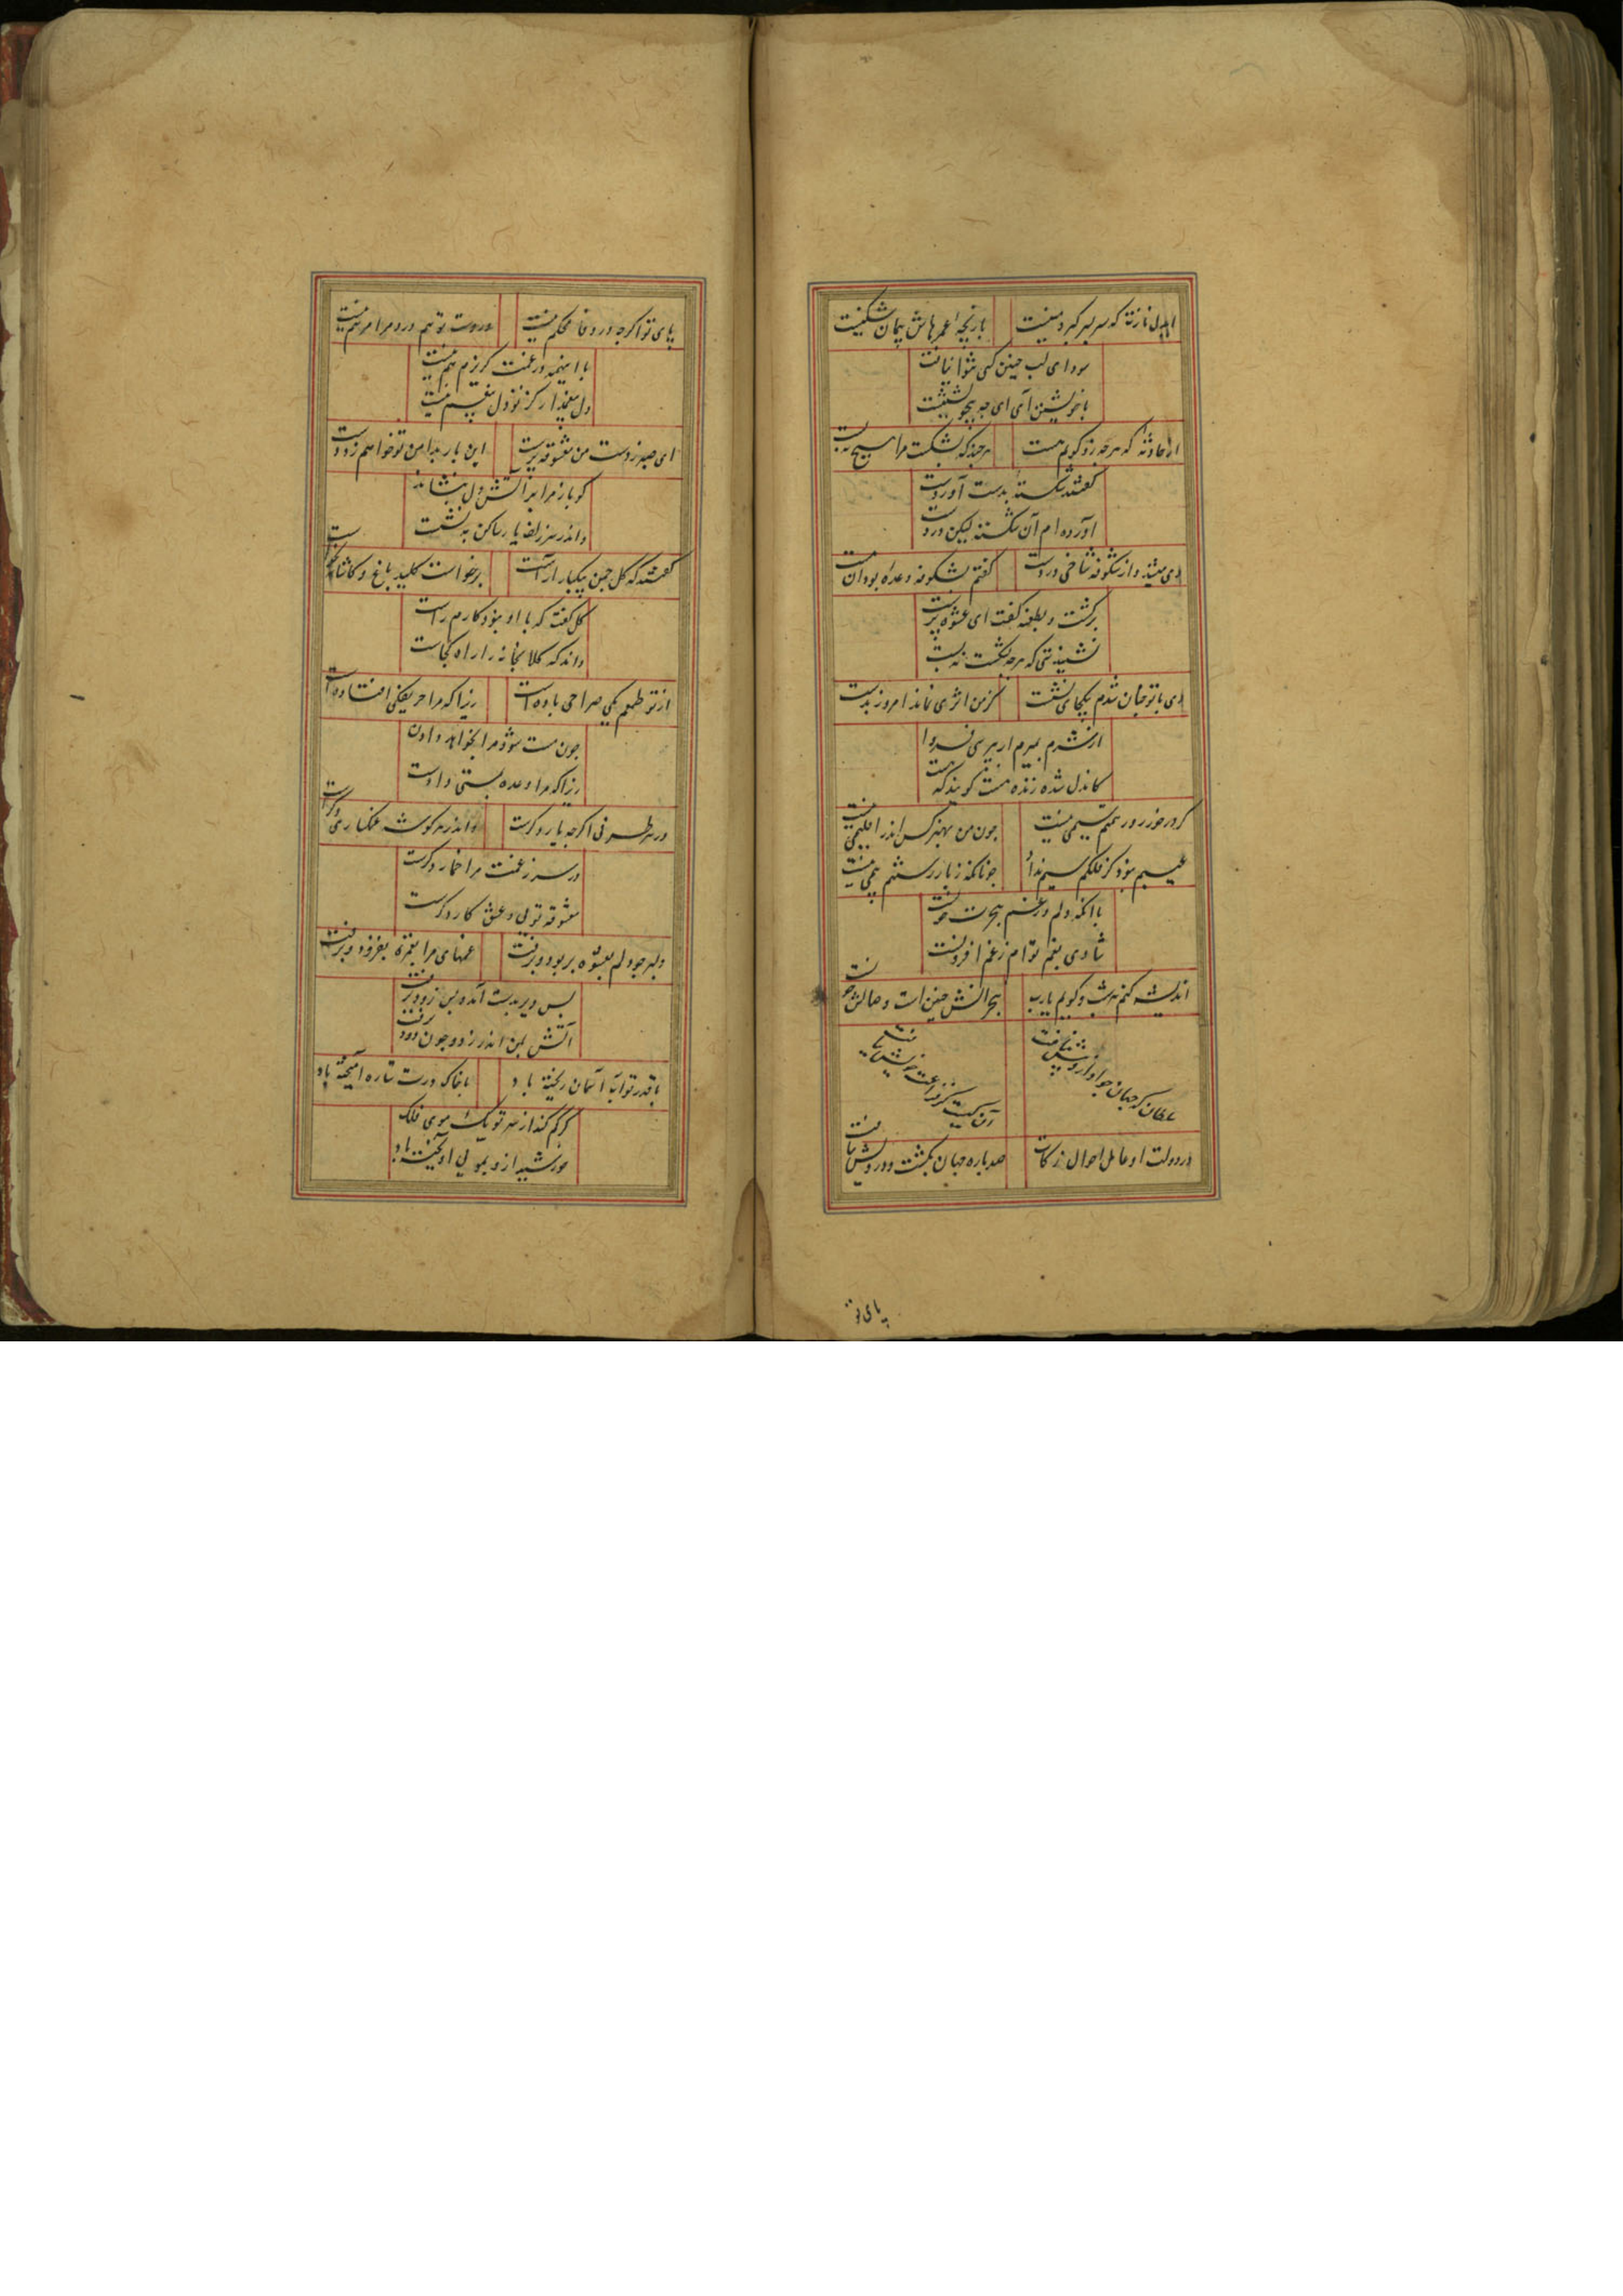 بازیچه عمرهاش پیمان شکنیست
سودای لب چنین کسی نتوان یافت
با خویشتن آی ای چه بیخویشتنیست
از حادثه که هرچه زو گویم هست
هرچند که بشکست مرا هیچ نبست
گفتند شکسته بدست آوردست
آورده ام آن شکسته لیکن در دست
دی میشد و از شکوفه شاخی در دست
گفتم بشکوفه وعده بود آن
برگشت و بطعنه گفت ای عشوه پرست
نشنیدستی که هرچه بشکفت نه بست
دی با تو چنان شدم بیکجای نشست
کز من اثری نماند امروز بدست
از شرم بمیرم ار بپرسی فردا
کاندل شده زنده هست گویند که هست
گر در خور در یتیم سیمی نیست
چون من بهنر کس اندر اقلیمی نیست
عیبم نبود گر فلکم سیم نداد
با آنکه دلم در غم هجرت خونست
شادی بغم توام ز غم افزونست
اندیشه کنم هر شب و گویم یارب
هجرانش چنین است وصالش چونست
سلطان که جهان
در دولت او عامل احوال زکات
صد باره جهان بگشت و درویش نیافت
پای تو
پای تو اگرچه در وفا محکم نیست
در دست تو هم درد مرا مرهم نیست
با اینهمه در غمت گریزم هم نیست
ای صبر ز دست من معشوقه پرست
این بار بدامن تو خواهم زد دست
گو باز مرا بر آتش دل بنشاند
و اندر سر زلف یار ساکن به نشست
گفتند که گل چمن بیکبار آراست
برخواست کلید باغ و کاشانه بخواست
گل گفت که با او بنود کارم راست
داند که کلابخانه را راه کجاست
از تو طمعم یکی صراحی بادست
زیرا که مرا حریفکی افتادست
چون مست شود مرا بخواهد دادن
زیرا که مرا وعده بمستی دادست
در هر طرفی اگرچه یار دگرست
و اندر هر گوشه غمگساری دگرست
در سر ز غمت مرا خمار دگرست
معشوقه تویی و عشق کار دگرست
دلبر چو دلم بعشوه بربود و برفت
غمهای مرا بغمزه بفزود و برفت
بس دیر بدست آمده بس زود برفت
آتش بمن اندر زد و چون دود برفت
با قدر تو آب آسمان ریخته باد
با خاک درت ستاره آمیخته باد
گر کم کند از سر تو یک موی فلک
خورشید ازو بمویی آویخته باد